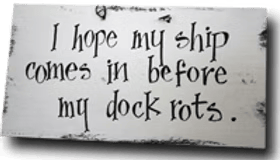 I hope my ship
comes in before
my dock rots.